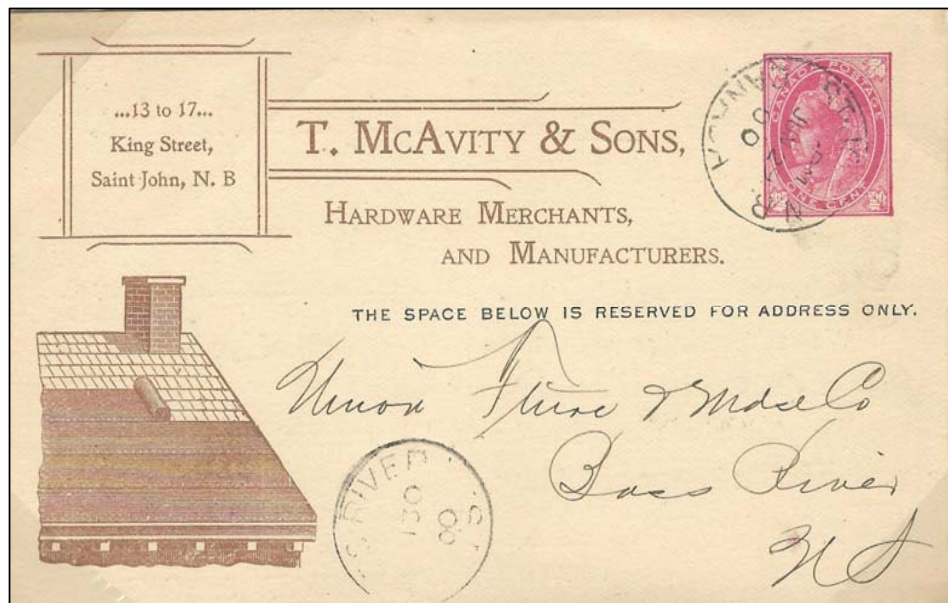 ...13 to 17...
King Street,
Saint John, N. B
T. McAvity & Sons,
Hardware Merchants,
and Manufacturers.
CANADA POSTAGE
ONE CENT
THE SPACE BELOW IS RESERVED FOR ADDRESS ONLY.
Union Furne & Mdse Co
Bass River
N S
S RIVER